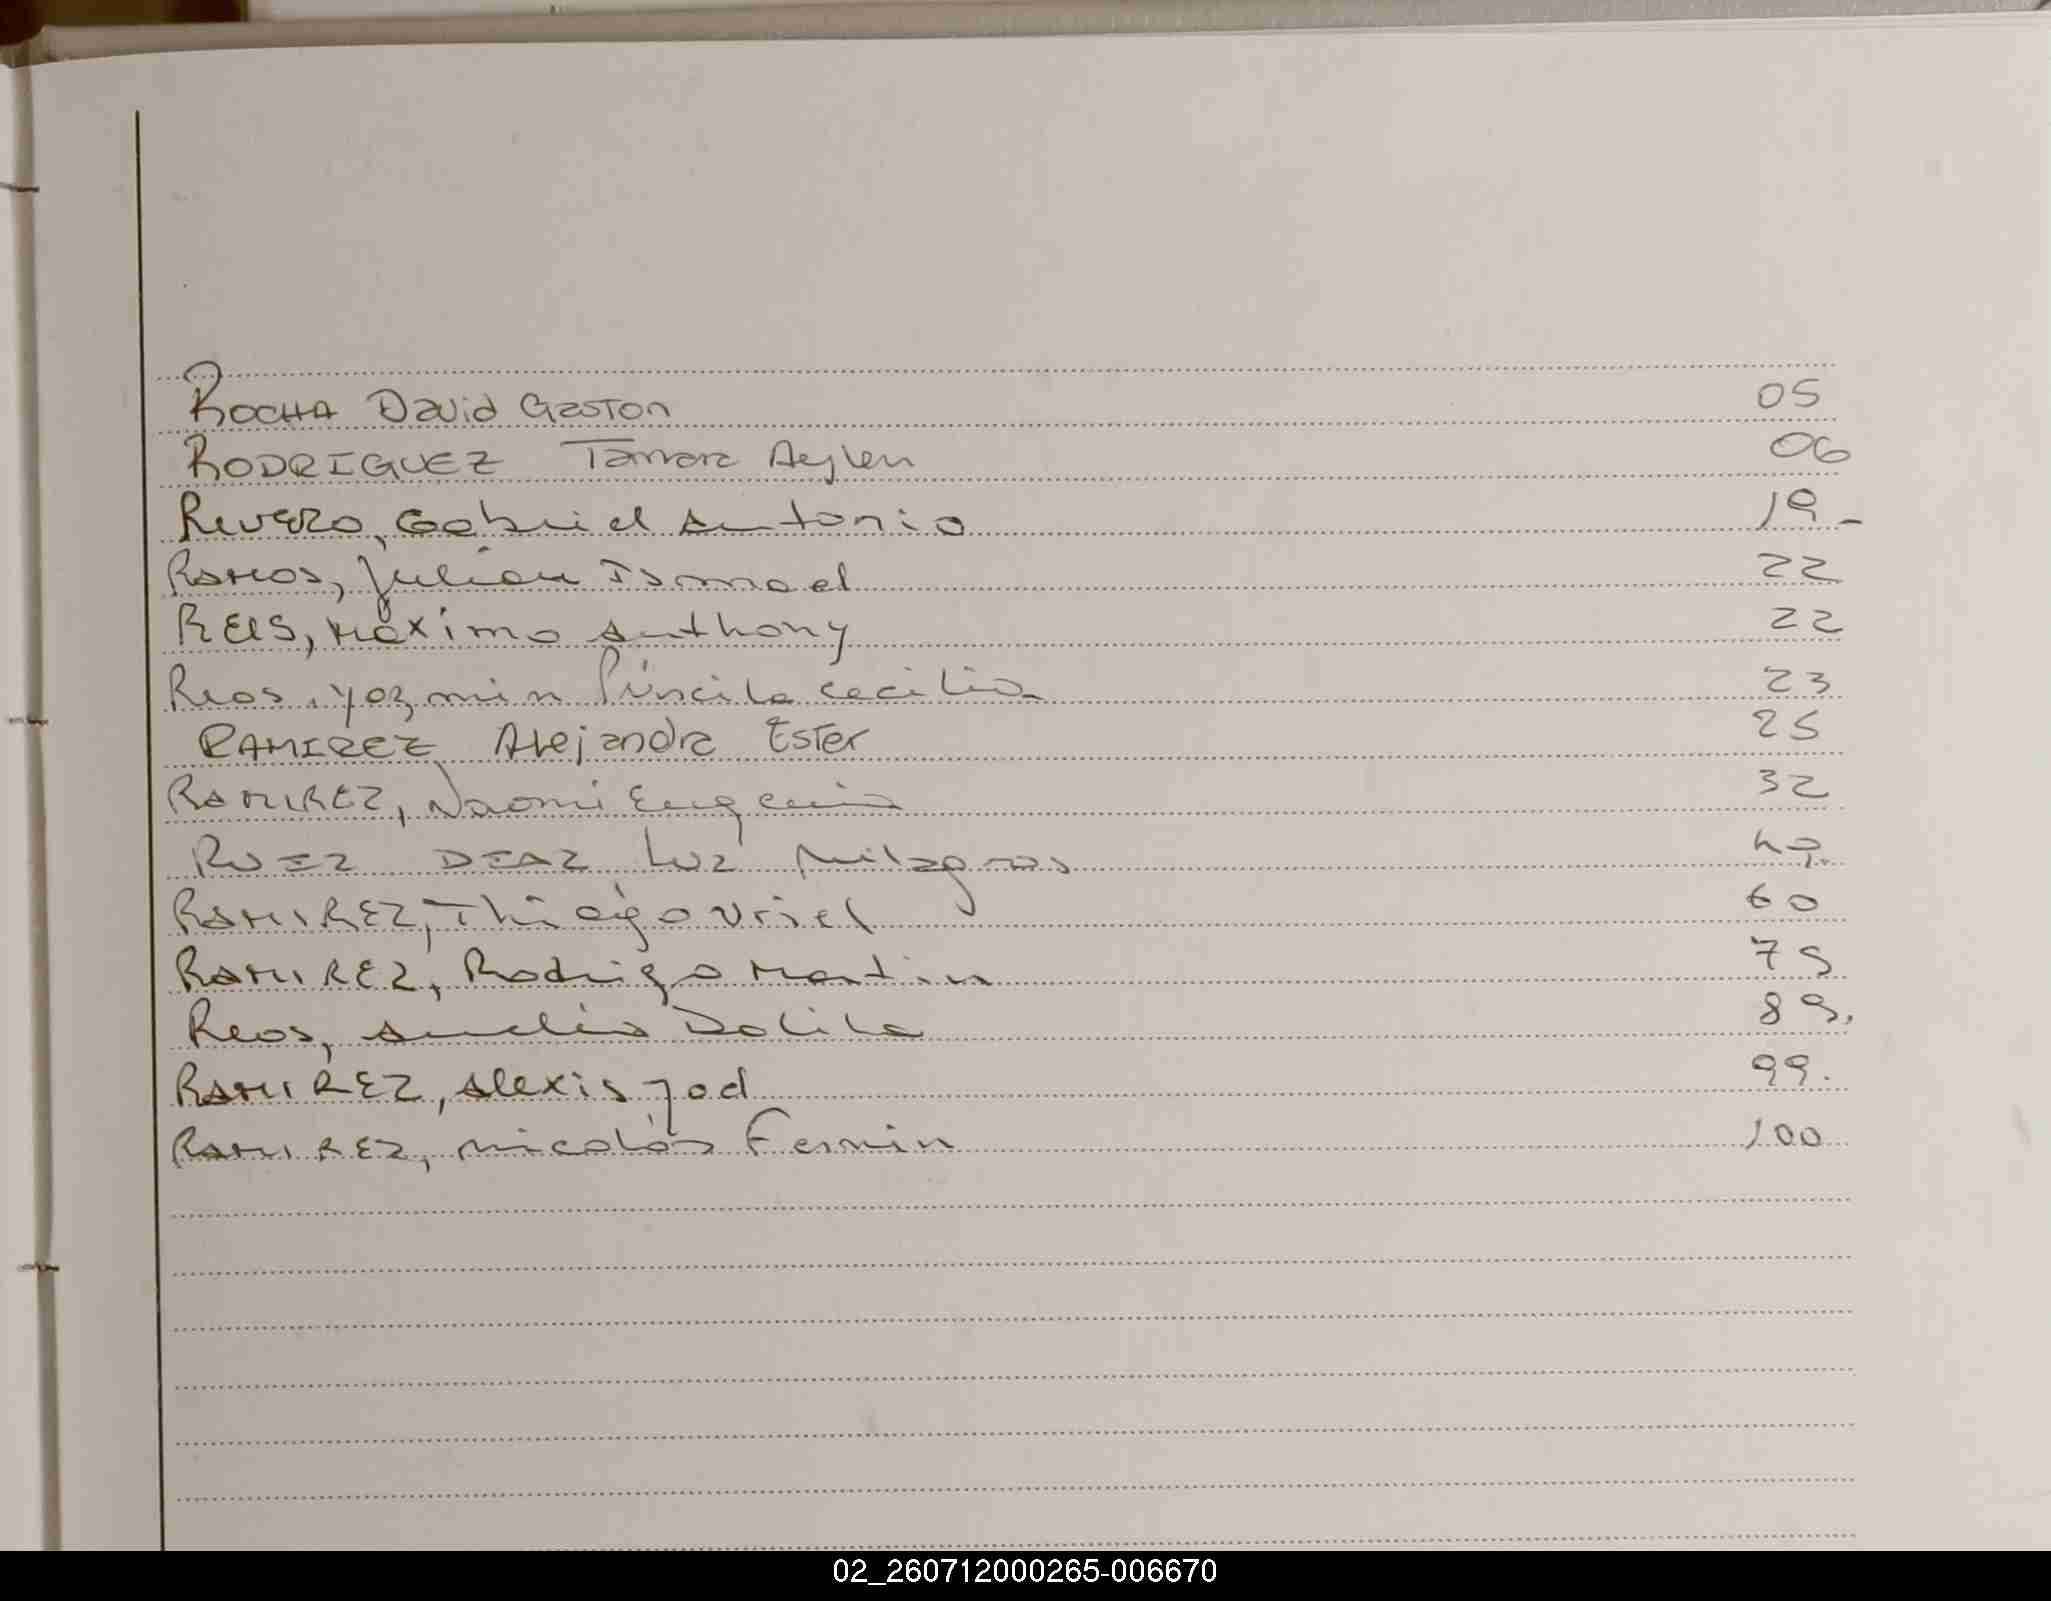 ROCHA David Gaston 05
RODRIGUEZ Tamara Aylen 06
Rivero, Gabriel Antonio 19-
Ramos, Julián Ismael 22
REIS, Máximo Anthony 22
Rios, Yazmin Priscila Cecilia 23
RAMIREZ Alejandra Ester 25
RAMIREZ, Naomi Eugenia 32
RUIZ DIAZ Luz Milagros
RAMIREZ, Thiago Uriel 60
RAMIREZ, Rodrigo Martin 75
Rios, Dalila 89.
RAMIREZ, Alexis Joel 99.
RAMIREZ, Nicolás Fermin 100
02_260712000265-006670